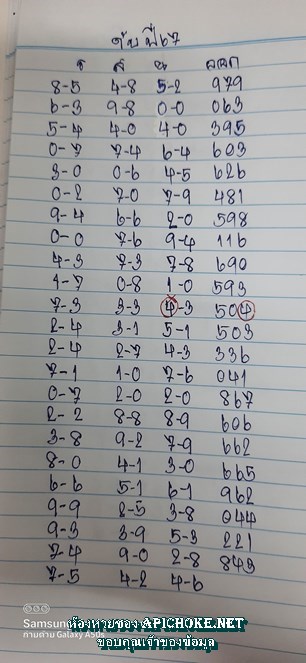 ดับปี67
ร ส น ออก
8-5 4-8 5-2 979
6-3 9-8 0-0 063
5-4 4-0 4-0 395
0-7 7-4 6-4 603
3-0 0-6 4-5 626
0-2 7-0 7-9 481
9-4 6-6 2-0 598
0-0 7-6 9-4 116
4-3 7-3 7-8 690
1-7 0-8 1-0 593
7-3 3-3 4-3 504
2-4 3-1 5-1 503
2-4 2-7 4-3 336
7-1 1-0 7-6 041
0-7 2-0 2-0 867
2-2 8-8 8-9 606
3-8 9-2 7-9 662
8-0 4-1 3-0 665
6-6 5-1 6-1 962
9-9 2-5 3-8 044
9-3 3-9 5-3 221
7-4 9-0 2-8 843
7-5 4-2 4-6
Samsung
ถ่ายด้วย Galaxy A50s
ห้องหวยซอง APICHOKE.NET
ขอบคุณเจ้าของข้อมูล